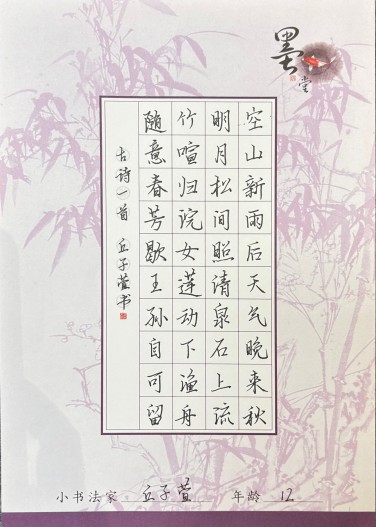 墨堂
空山新雨后天气晚来秋
明月松间照清泉石上流
竹喧归浣女莲动下渔舟
随意春芳歇王孙自可留
古诗一首 丘子萱书
小书法家：丘子萱 年龄 12